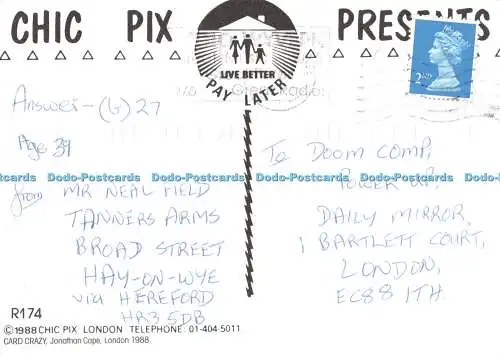 CHIC PIX PRESENTS
LIVE BETTER
PAY LATER
2ND
Answer - (b) 27
Age 39
from MR NEAL FIELD
TANNERS ARMS
BROAD STREET
HAY-ON-WYE
via HEREFORD
HR3 5DB
To DOOM COMP,
POWER UP,
DAILY MIRROR,
1 BARTLETT COURT,
LONDON,
EC88 1TH.
Dodo-Postcards Dodo-Postcards Dodo-Postcards Dodo-Postcards Dodo-Postcards Dodo-Postcards
R174
©1988 CHIC PIX LONDON TELEPHONE: 01-404-5011
CARD CRAZY, Jonathan Cape, London 1988